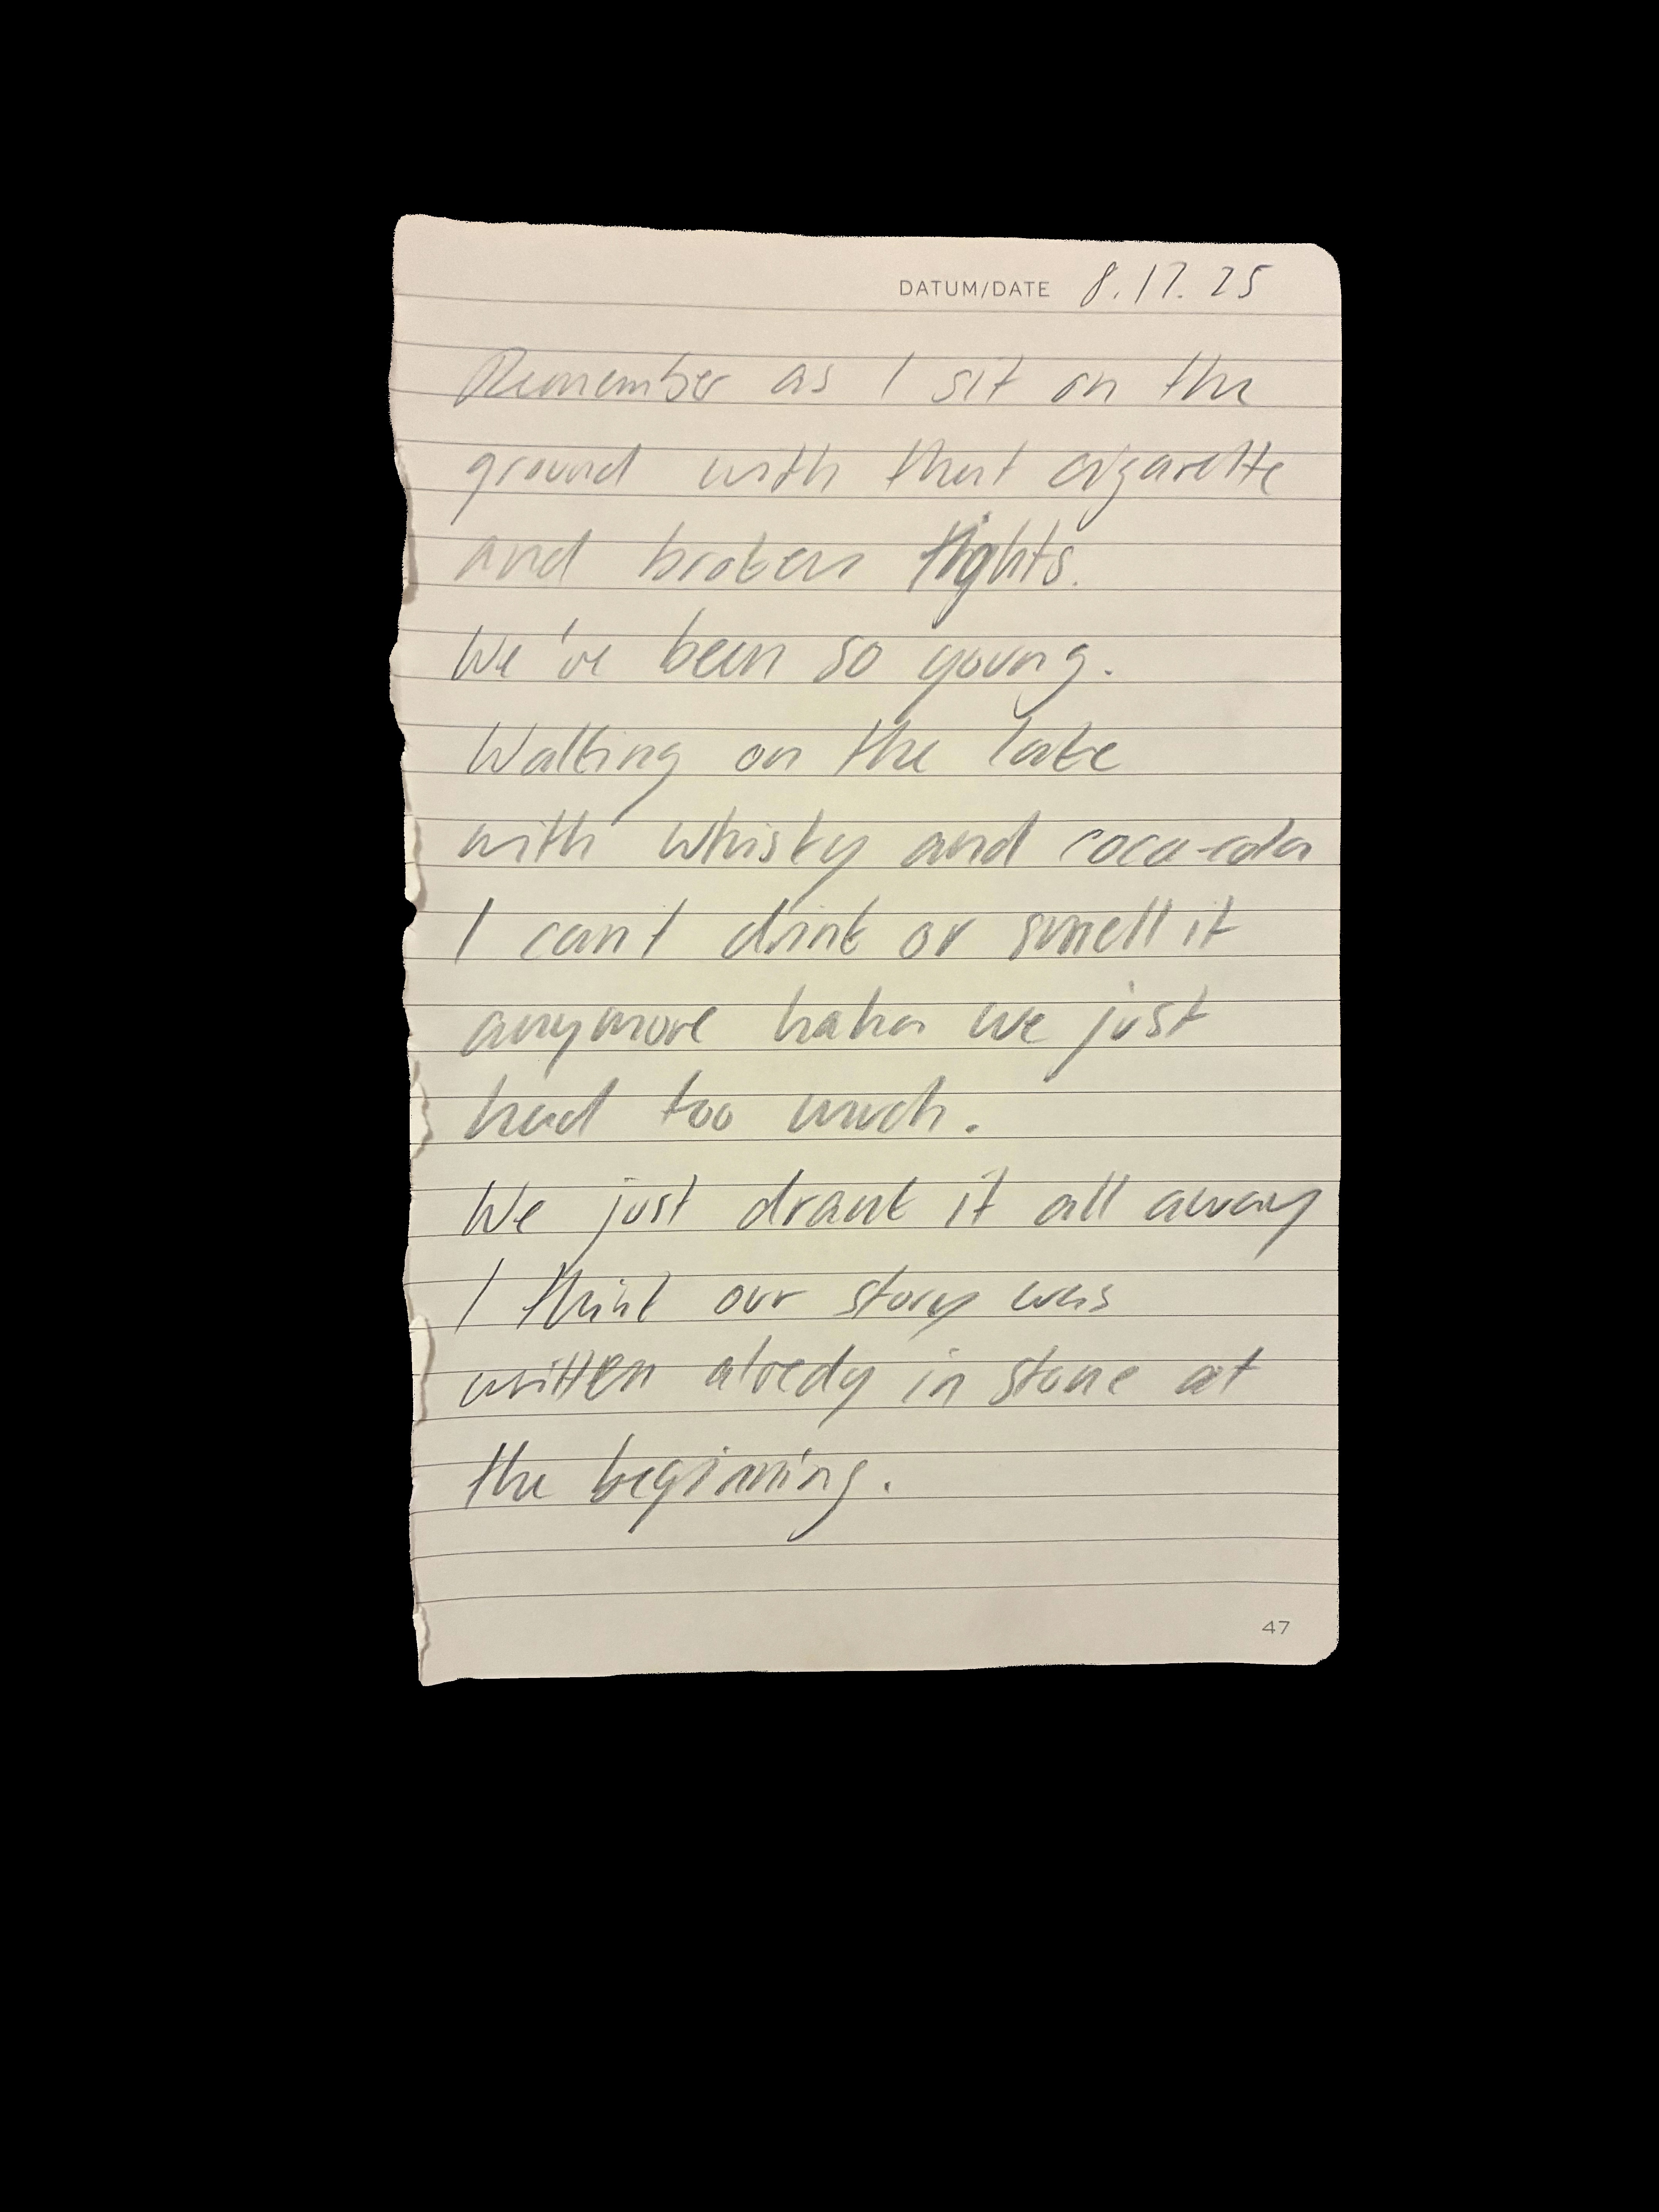 DATUM/DATE 8.17.25
Remember as I sit on the
ground with that cigarette
and broken tights.
We've been so young.
Walking on the lake
with whisky and coca-cola
I can't drink or smell it
anymore haha we just
had too much.
We just drank it all away
I think our story was
written alredy in stone at
the beginning.
47